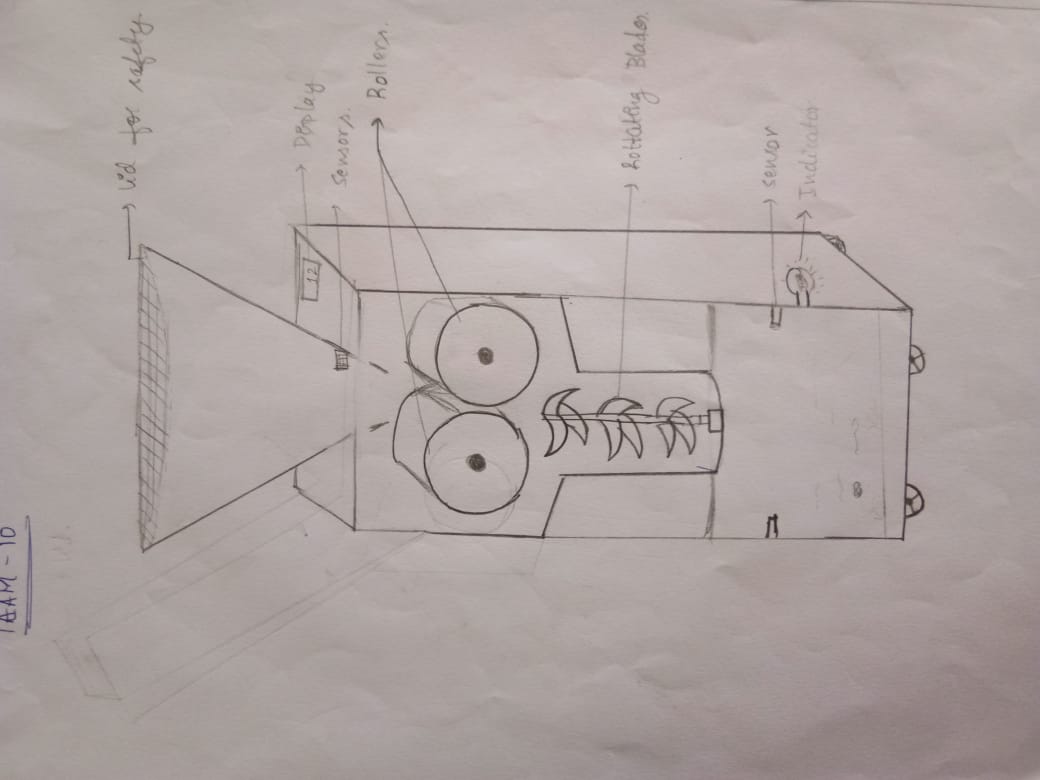 TEAM - 10
Lid for safety
Display
Sensors.
Rollers.
12
Rottating Blades.
sensor
Indicator